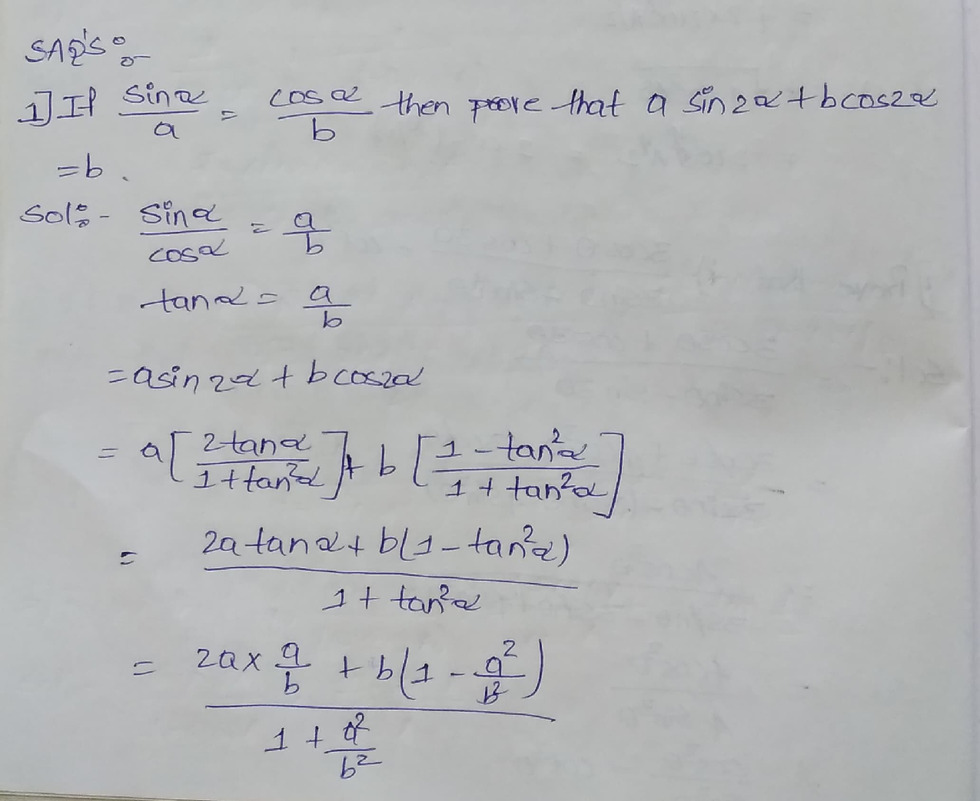 SAQ'S :-
1] If sinα/a = cosα/b then prove that a sin2α + bcos2α
= b.
Sol:- sinα/cosα = a/b
tanα = a/b
= asin2α + bcos2α
= a[2tanα/1+tan²α] + b[1-tan²α/1+tan²α]
= 2a tanα + b(1-tan²α)/1+tan²α
= 2a x a/b + b(1 - a²/b²)/1 + a²/b²